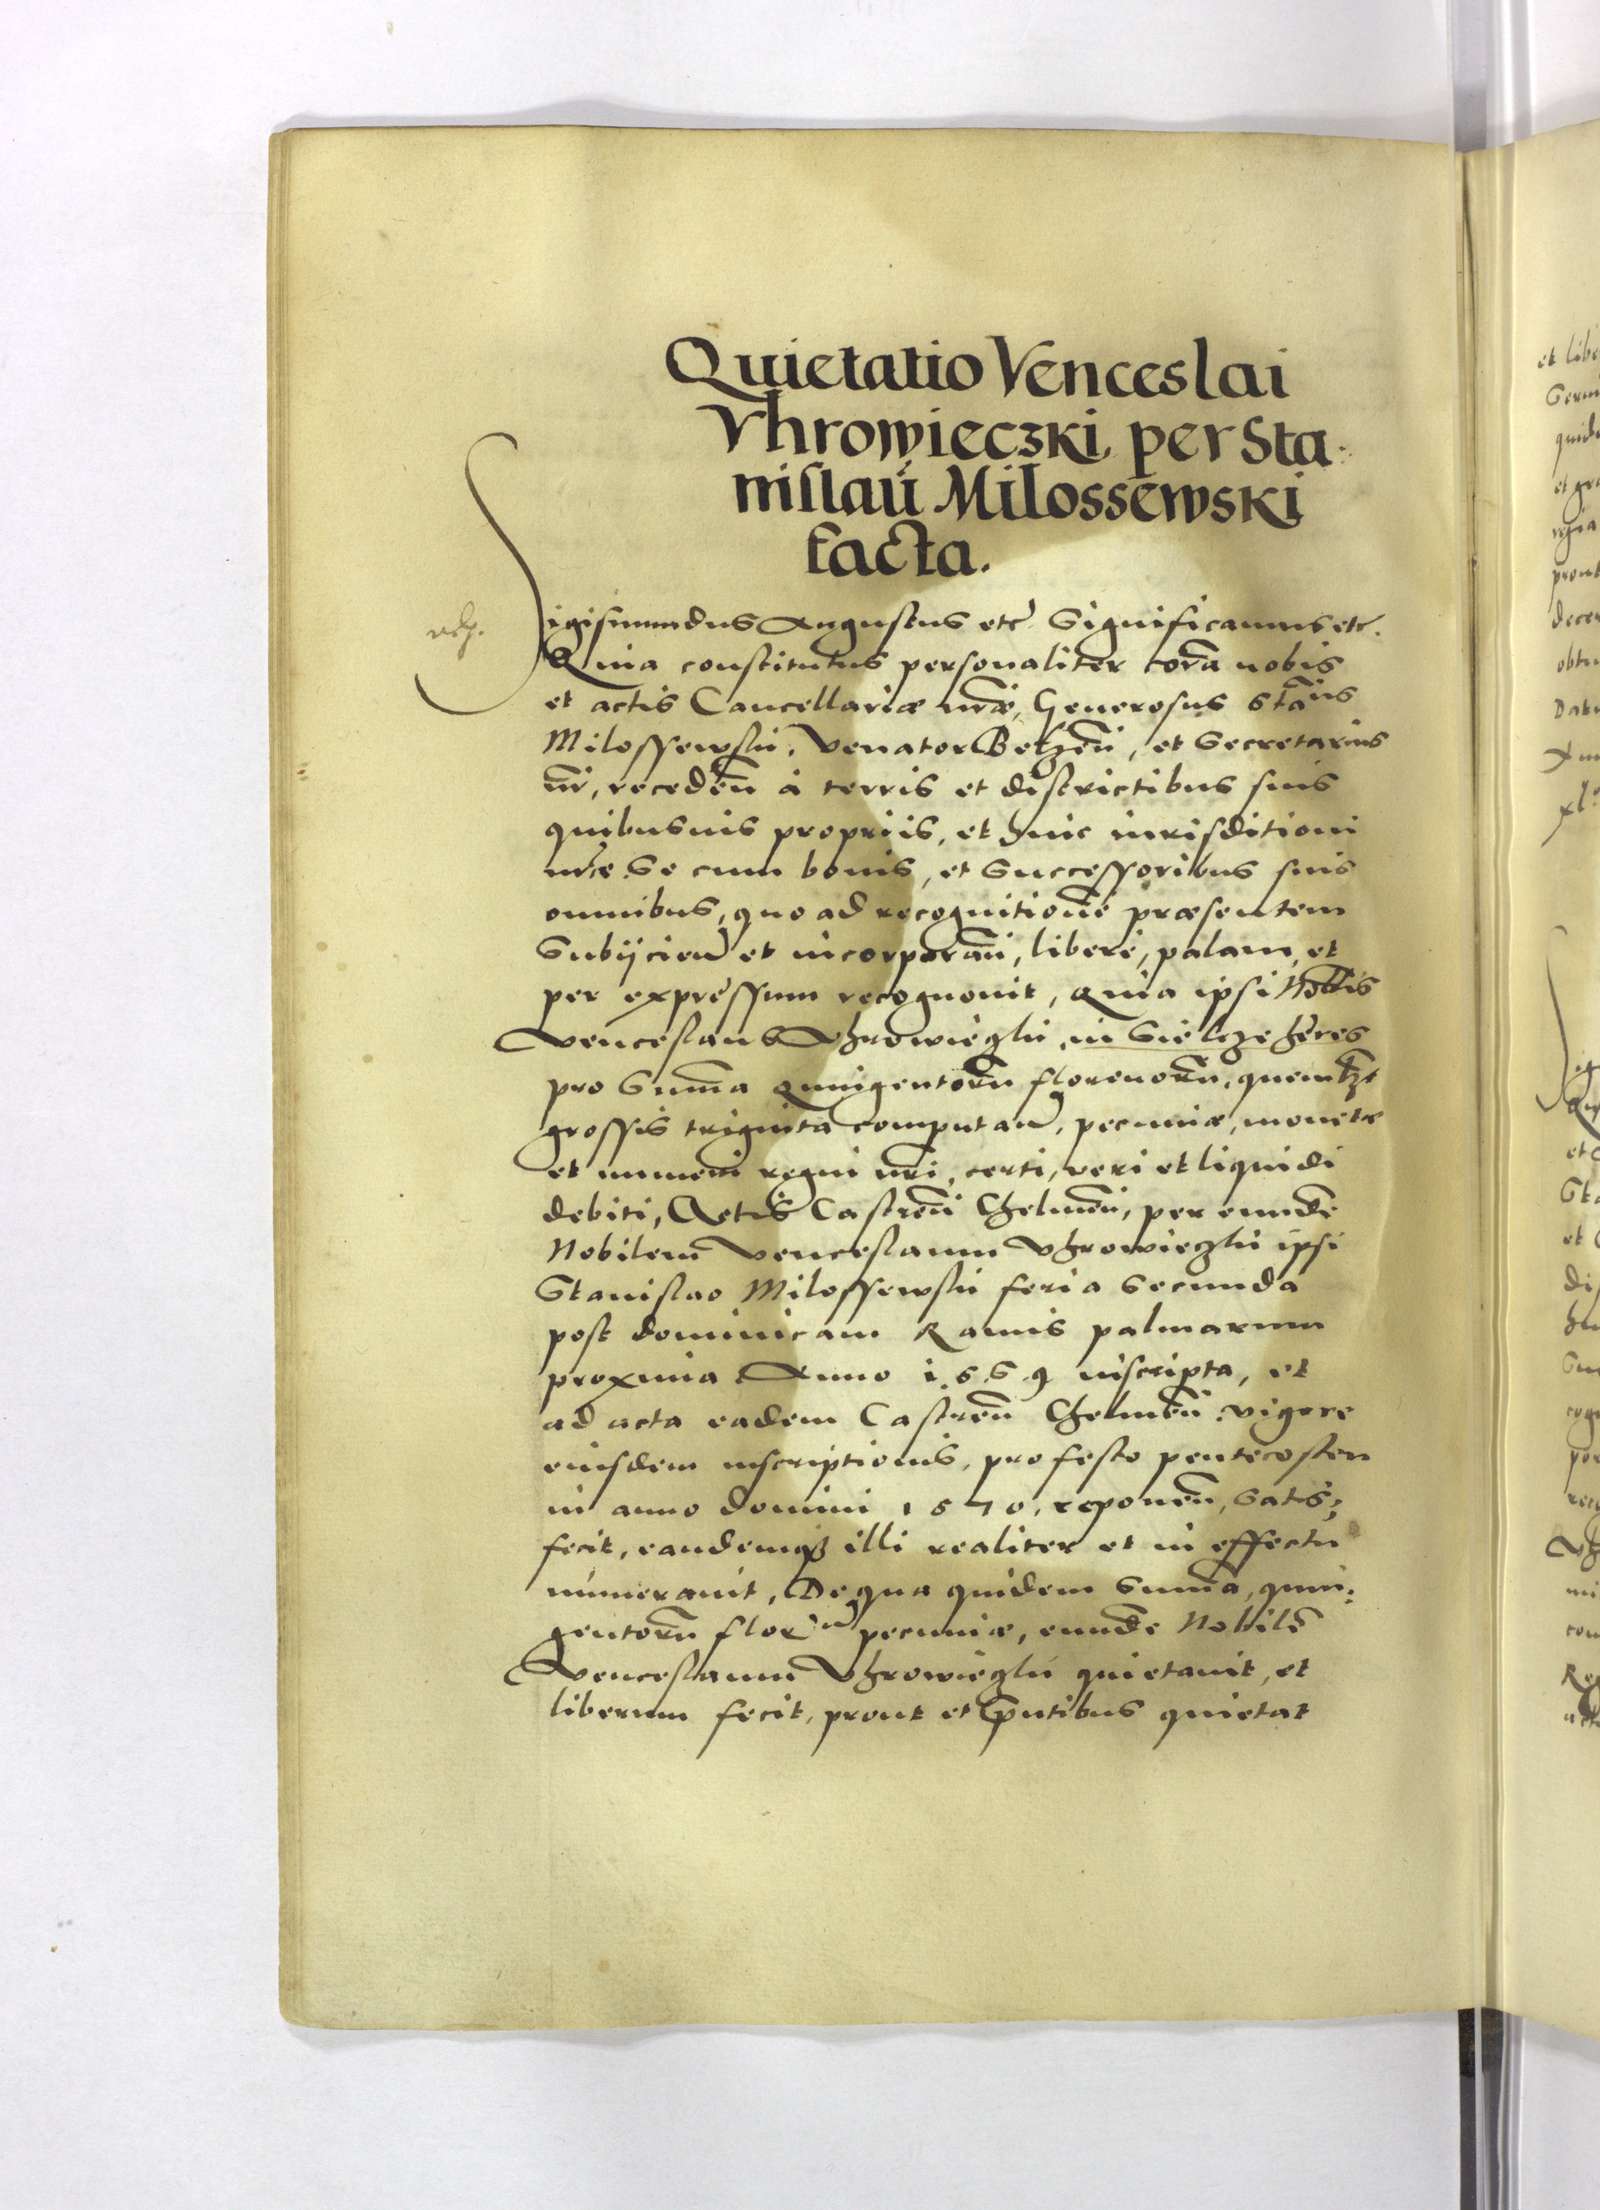 Quietatio Venceslai
Vhrowieczki, per Sta:
nislaū Milossewski
facta.
Sigismundus Augustus etc̃ Significamus etc.
Quia constitutus personaliter corā nobis
et actis Cancellariæ nr̃æ, Generosus Stãus
Milossewski, Venator Belzen̄, et Secretarius
nr̃, receden̄ à terris et districtibus suis
quibusuis propriis, et huic iurisditioni
nr̃æ Se cum bonis, et Successoribus suis
omnibus, quo ad recognitionē præsentem
Subijcien̄ et incorporan̄, liberè, palam, et
per expressum recognouit, Quia ipsi Nobilis
Venceslaus Vhrowieczki, in Sielcze hæres
pro Summa Quingentorū florenorū, quemlz̃t
grossis triginta computan̄, pecuniæ, monetæ
et numeri regni nr̃i, certi, veri et liquidi
debiti, Actis Castren̄ Chelmen̄, per eundē
Nobilem Venceslaum Vhrowieczki ipsi
Stanislao Milossewski feria Secunda
post dominicam Ramis palmarum
proxima Anno 1569 inscripta, et
ad acta eadem Castren̄ Chelmen̄ vigore
eiusdem inscriptionis, pro festo pentecosten
in anno domini 1570, reponen̄, Satis:
fecit, eandemqȝ illi realiter et in effectu
numerauit, De qua quidem Summa, quin:
gentorū florenū pecuniæ, eundē Nobilē
Venceslaum Vhrowieczki quietauit, et
liberum fecit, prout et p̄ntibus quietat